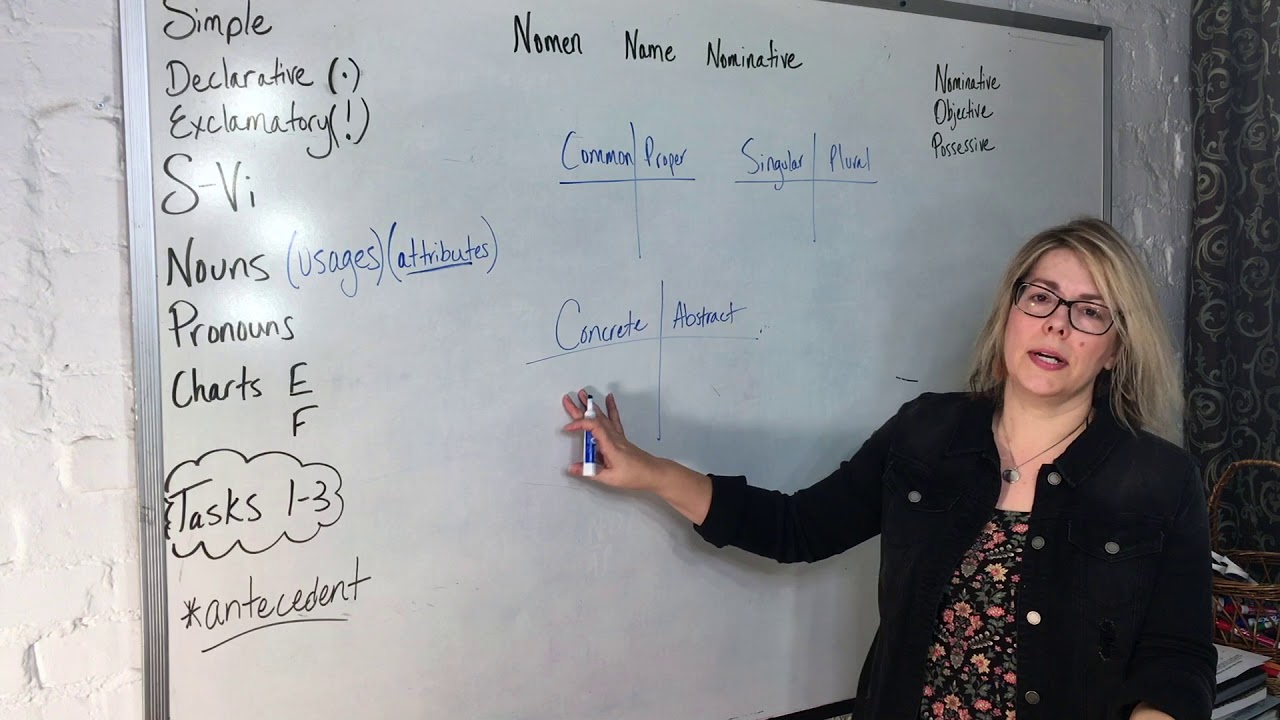 Simple
Declarative (.)
Exclamatory (!)
S-Vi
Nouns (usages) (attributes)
Pronouns
Charts E
F
Tasks 1-3
*antecedent
Nomen Name Nominative
Common Proper
Singular Plural
Concrete Abstract
Nominative
Objective
Possessive